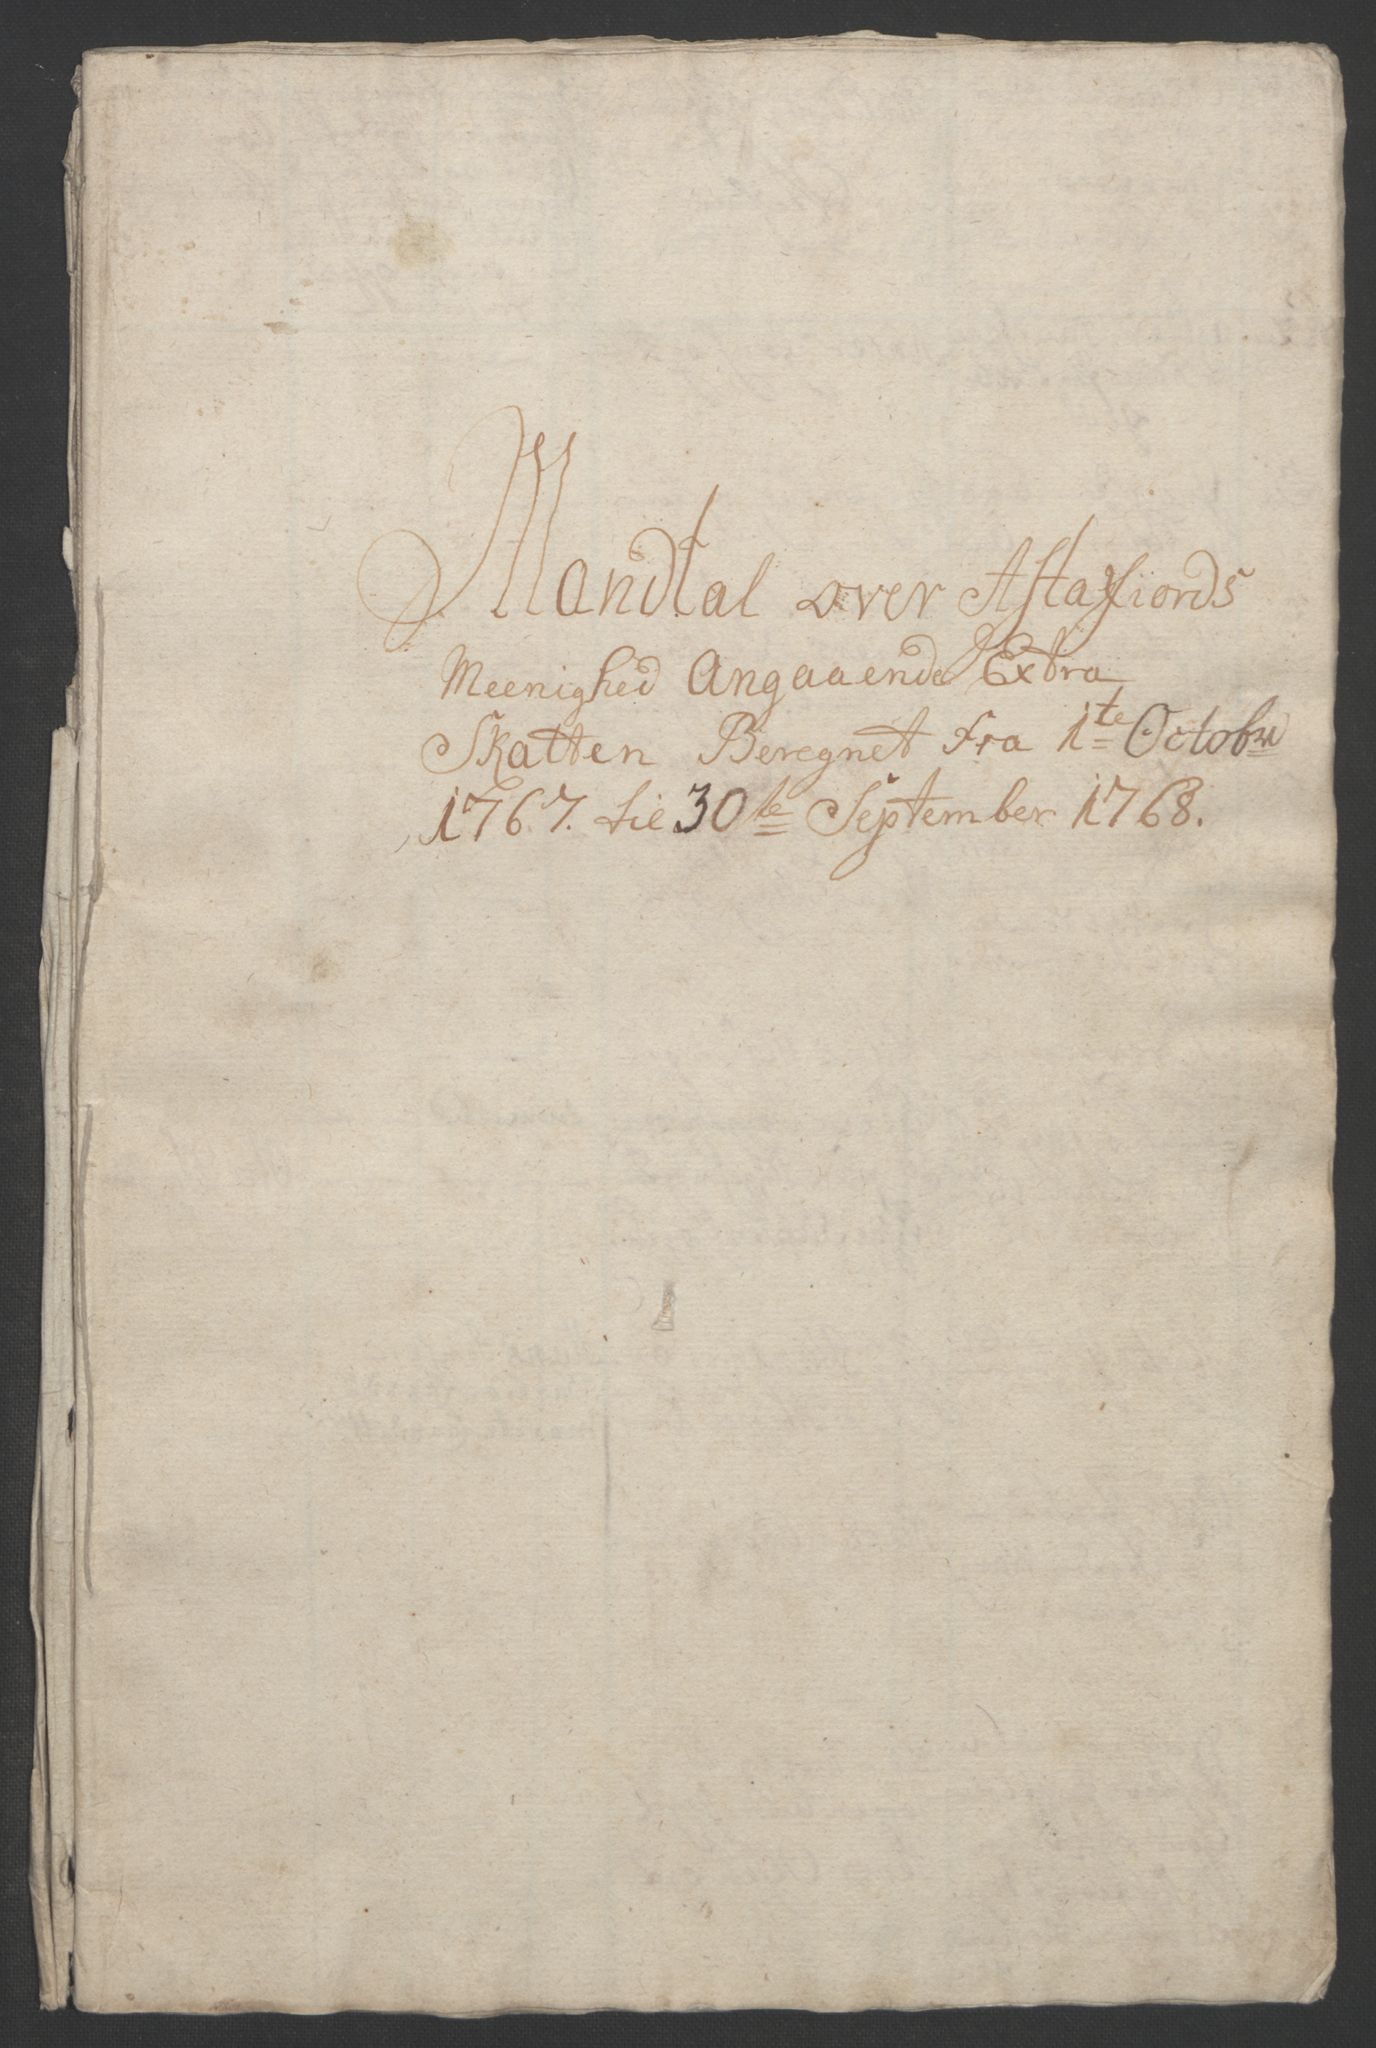 Mandtal over Astafiords
Meenighed Angaaende Extra
Skatten Beregnet fra 1te Octobr
1767. til 30te September 1768.